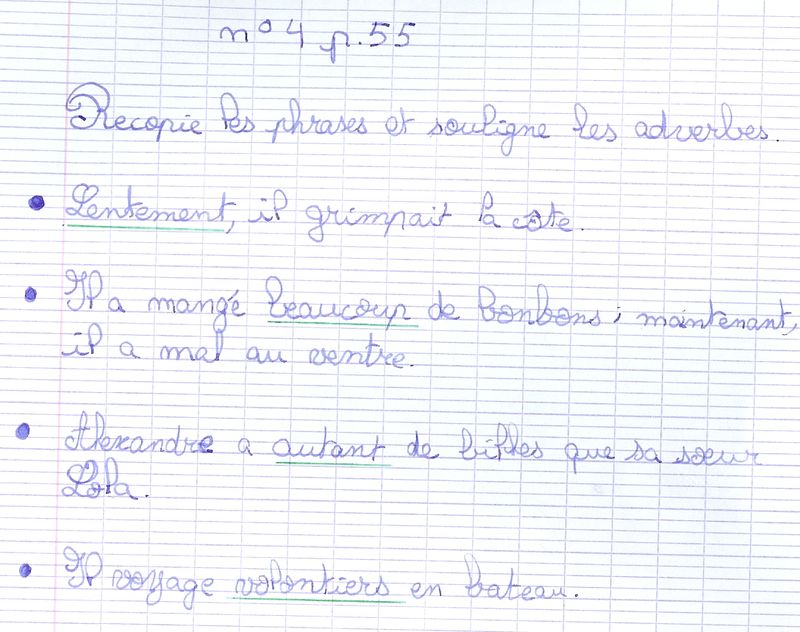 n° 4 p. 55
Recopie les phrases et souligne les adverbes.
• Lentement, il grimpait la cote.
• Il a mangé beaucoup de bonbons ; maintenant,
il a mal au ventre.
• Alexandre a autant de billes que sa sœur
Lola.
• Il voyage volontiers en bateau.